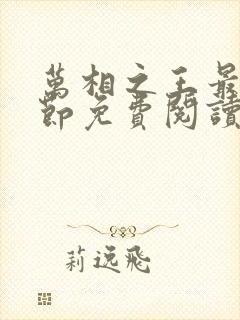 萬相之王最
節免費閱讀
莉逸飛